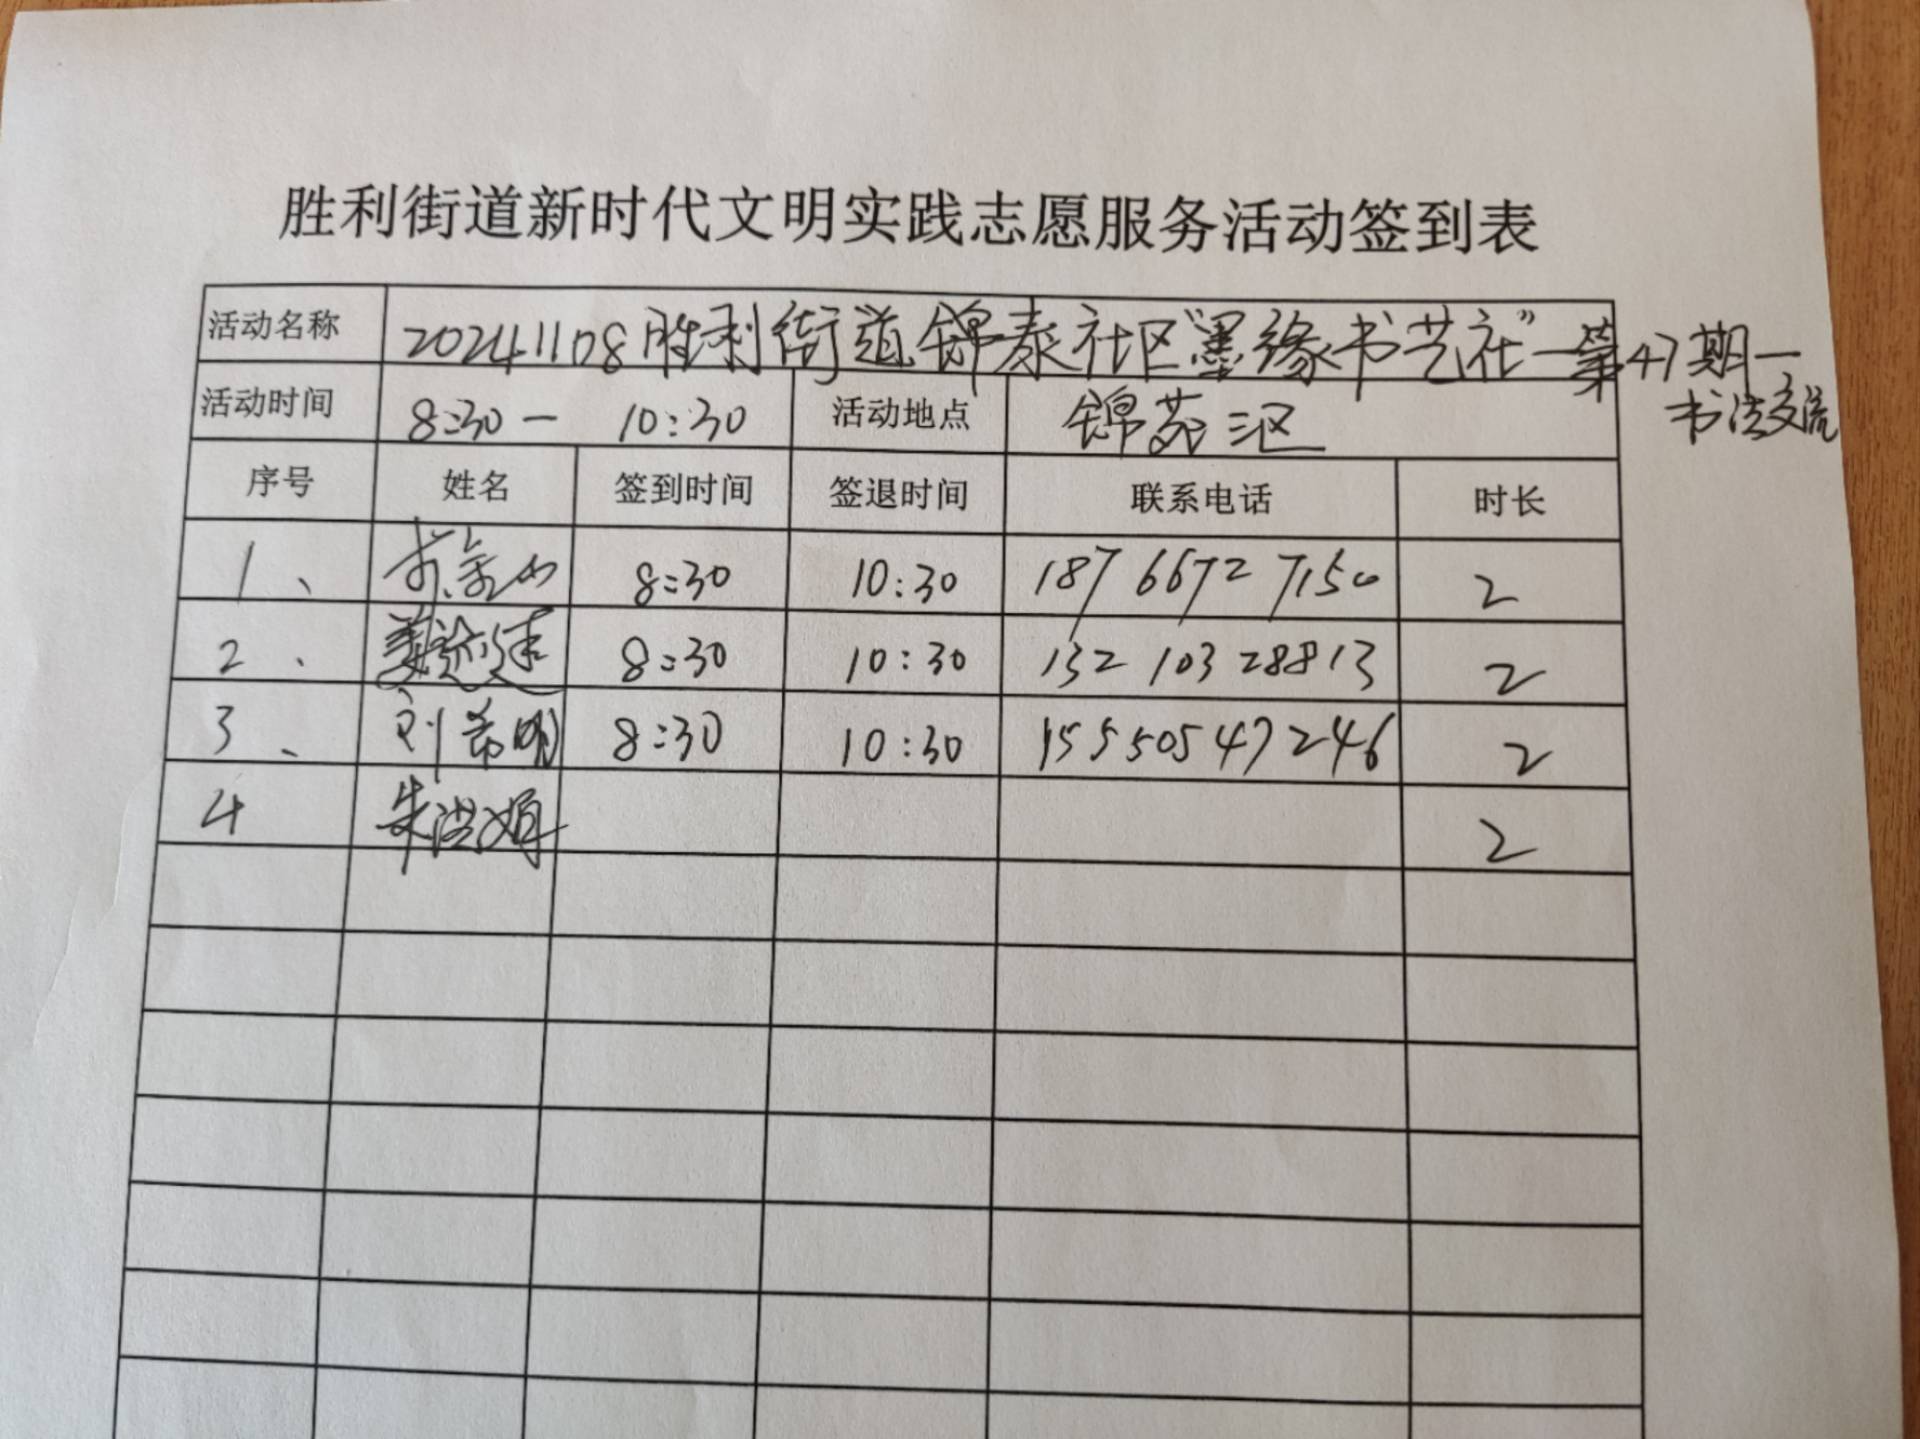 胜利街道新时代文明实践志愿服务活动签到表
活动名称 20241108胜利街道锦泰社区"墨缘书艺社"—第47期—
书法交流
活动时间 8:30— 10:30 活动地点 锦苑三区
序号 姓名 签到时间 签退时间 联系电话 时长
1、 8:30 10:30 187 6672 7150 2
2、 姜 8:30 10:30 132 103 28813 2
3、 刘希明 8:30 10:30 15550547246 2
4 朱洪娟 2